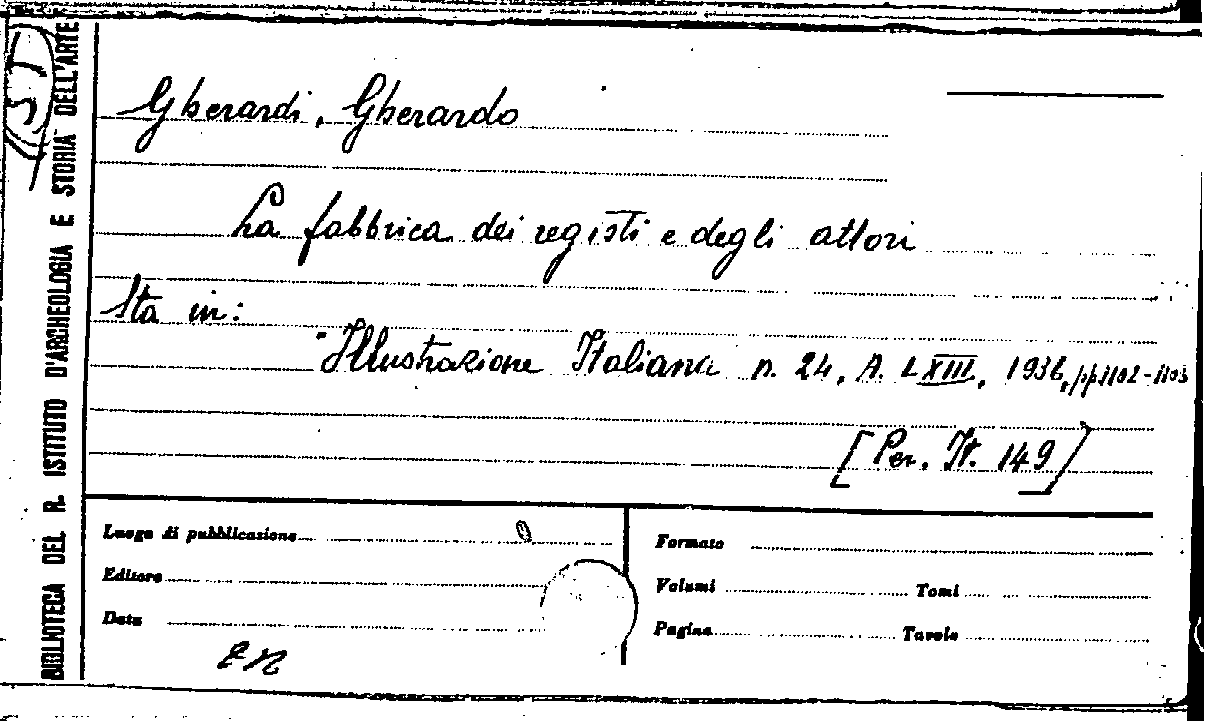 BIBLIOTECA DEL R. ISTITUTO D'ARCHEOLOGIA E STORIA DELL'ARTE
Gherardi, Gherardo
La fabbrica dei registi e degli attori
Sta in:
"Illustrazione Italiana n. 24, A. LXIII, 1936, pp 1102-1103
[Per. It. 149]
Luogo di pubblicazione
Formato
Editore
Volumi Tomi
Data
Pagine Tavole